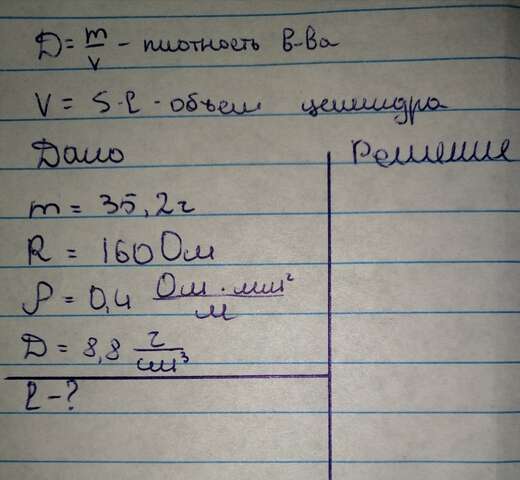 D = m/V - плотность в-ва
V = S · l - объем цилиндра
Дано
Решение
m = 35,2 г
R = 160 Ом
ρ = 0,4 Ом · мм²/м
D = 8,8 г/см³
l - ?